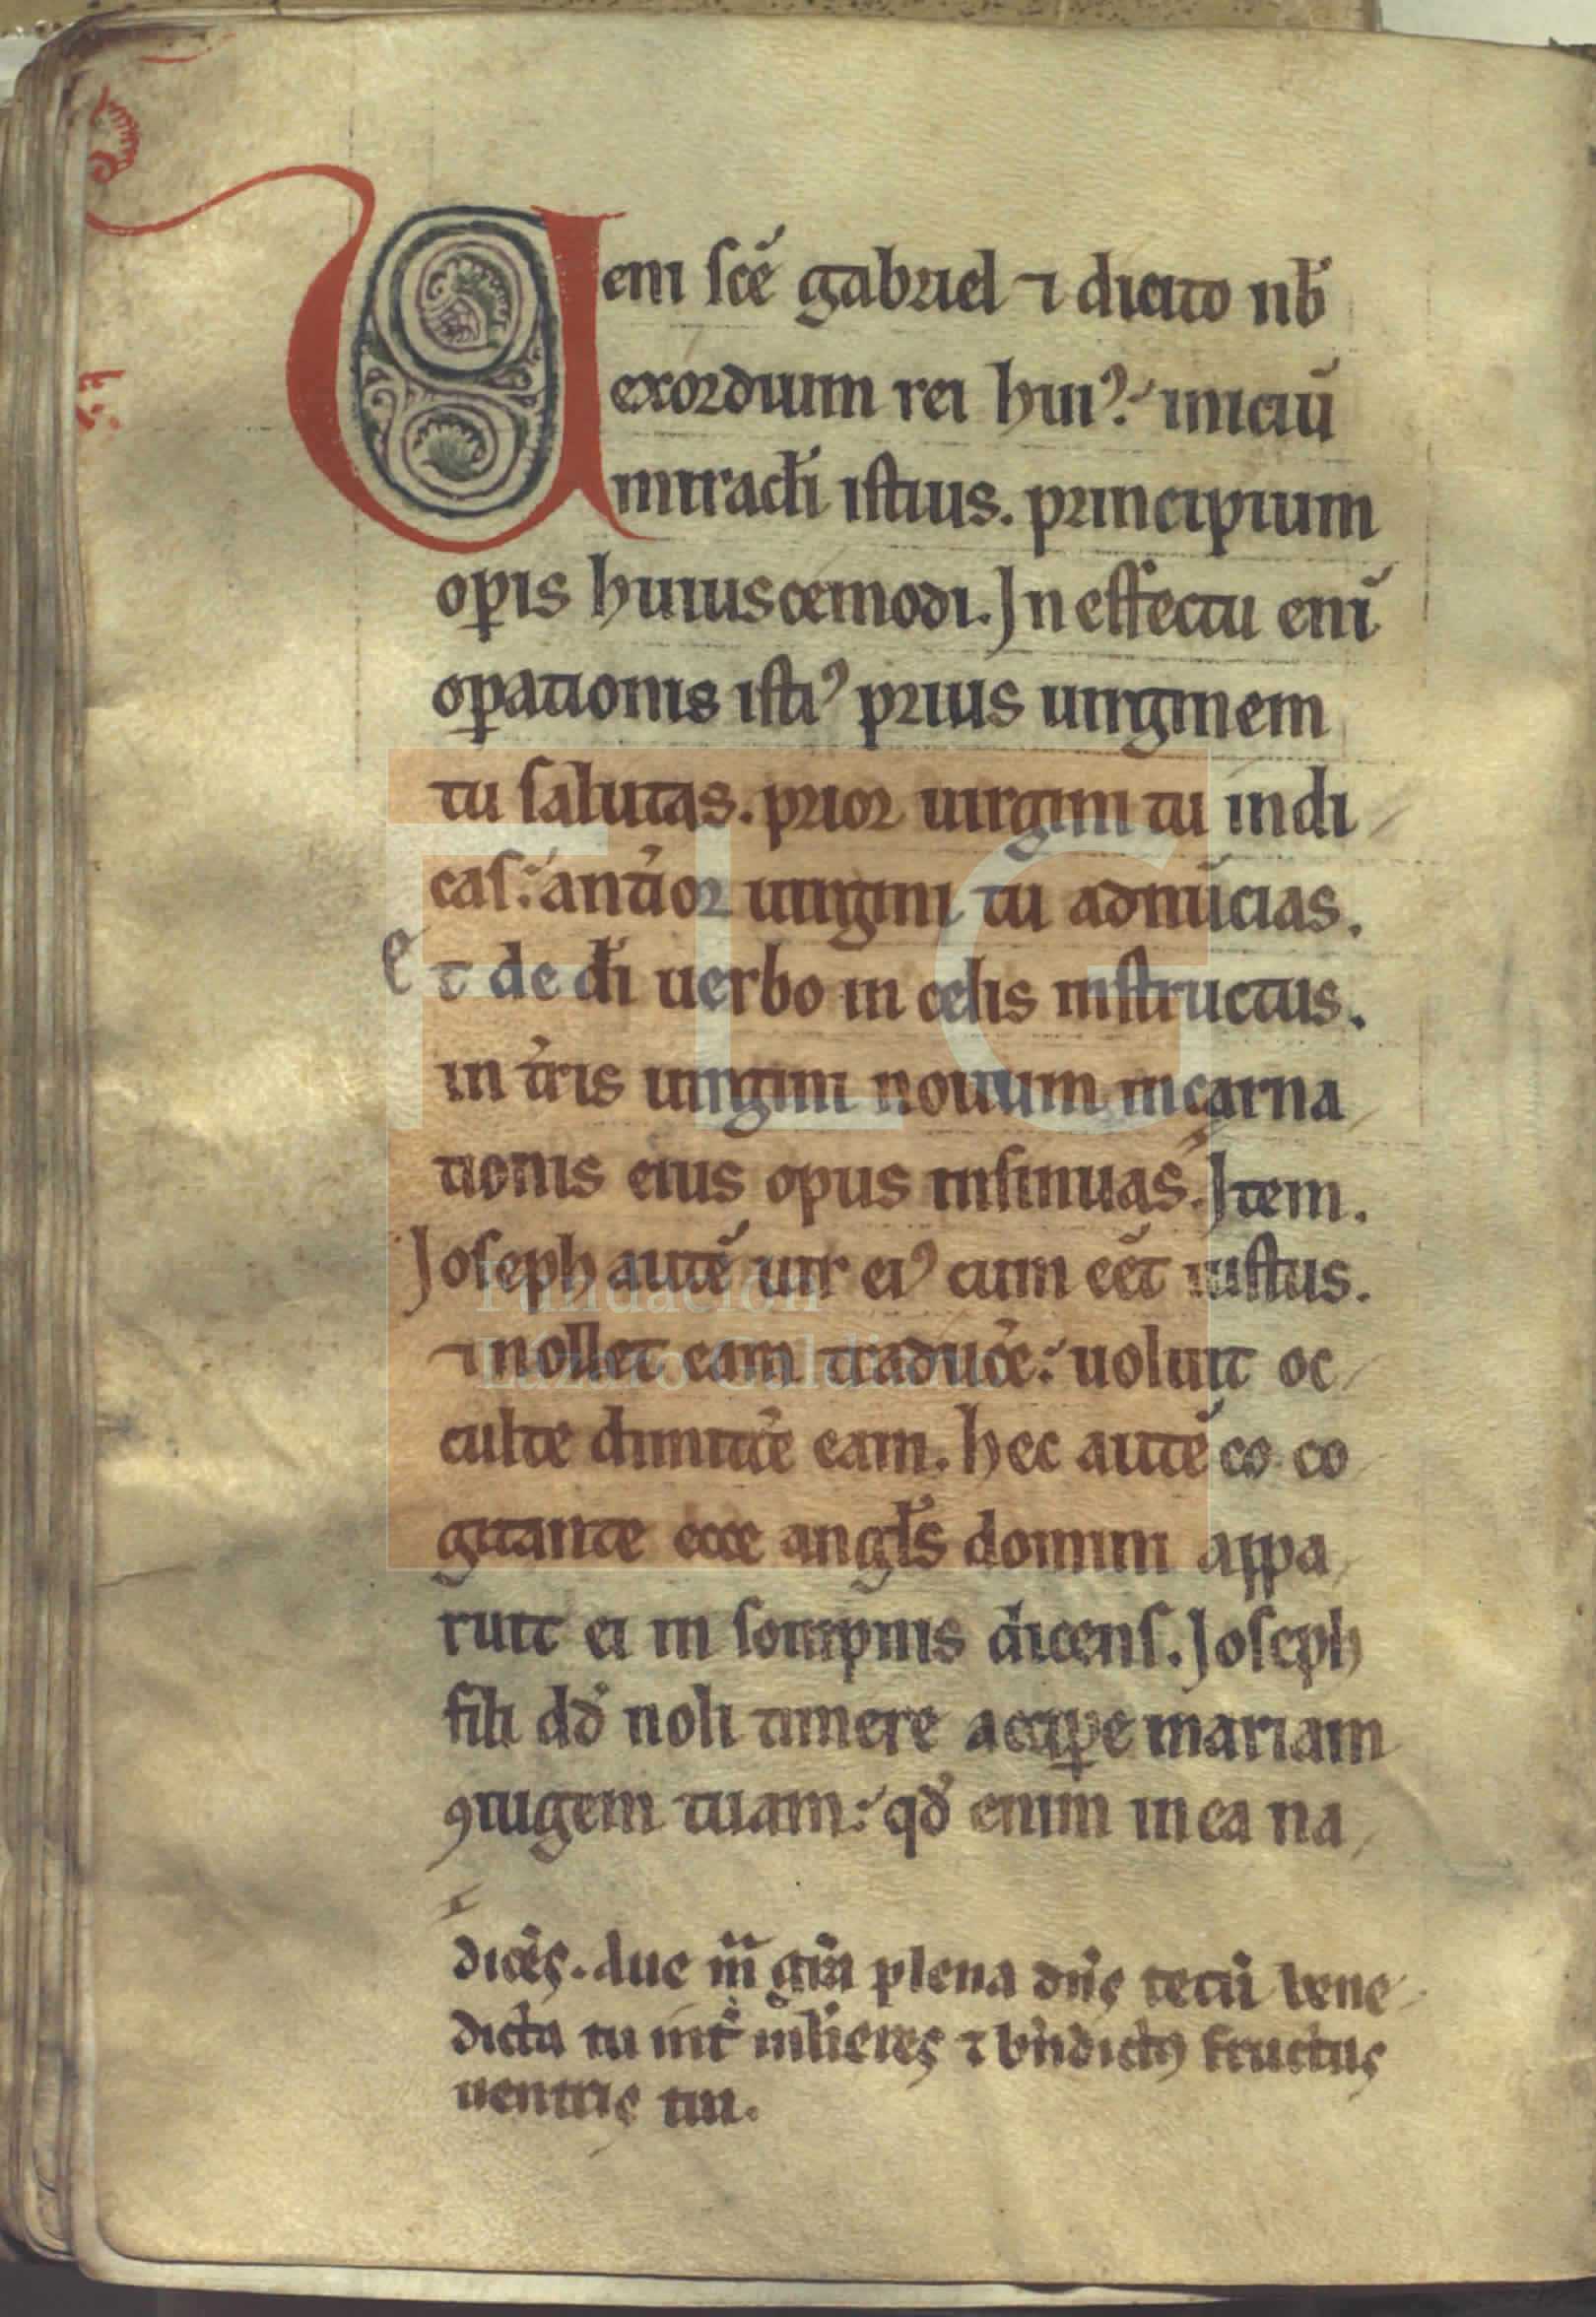 Ueni sc̄e gabriel ⁊ dicito nb̄
exordium rei huiꝰ: iniciū
miraclī istius. principium
op̱is huiuscemodi. In effectu enī
op̱ationis istiꝰ prius uirginem
tu salutas. prior uirgini tu indi
cas: ant̾ior uirgini tu adnūcias.
et de dī uerbo in celis instructus.
in t̾ris uirgini nouum incarna
tionis eius opus insinuas. Item.
Joseph autē uir eiꝰ cum eēt iustus.
⁊ nollet eam traduc̾e: uoluit oc
culte dimitt̾e eam. hec autē eo co
gitante ecce angl̄s domini appa
ruit ei in sompnis dicens. Joseph
fili dd̄ noli timere accip̱e mariam
ꝯiugem tuam: qd̄ enim in ea na
dicēs. Aue m̄ grā plena dn̄s tecū bene
dicta tu int̾ mlīeres ⁊ bn̄dictꝰ fructus
uentris tui.
FLG
Fundación
Lázaro Galdiano